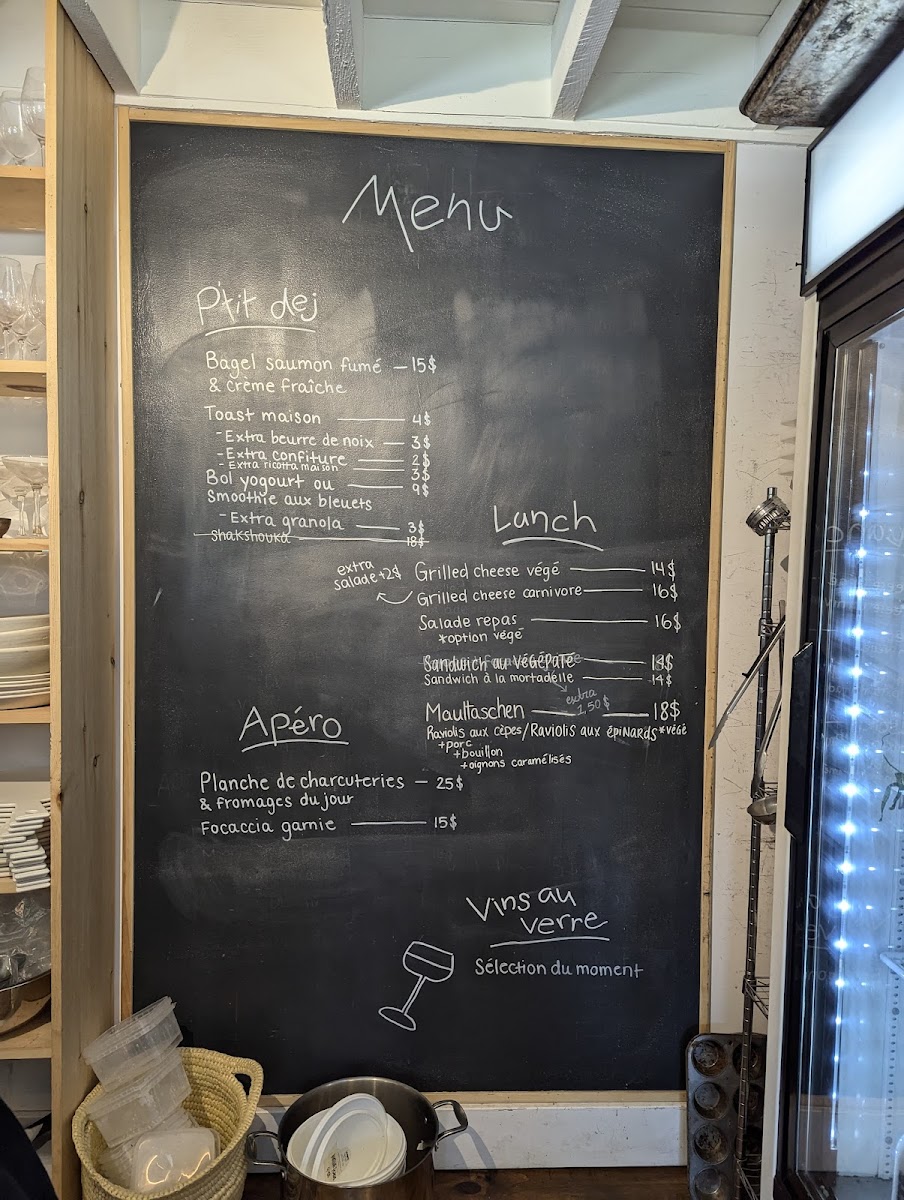 Menu
P'tit dej
Bagel saumon fumé — 15$
& crème fraîche
Toast maison — 4$
- Extra beurre de noix — 3$
- Extra confiture — 2$
- Extra ricotta maison — 3$
Bol yogourt ou — 9$
Smoothie aux bleuets
- Extra granola — 3$
shakshouka — 18$
Lunch
extra
salade +2$
Grilled cheese végé — 14$
Grilled cheese carnivore — 16$
Salade repas — 16$
*option végé
Sandwich au végépâté — 14$
Sandwich à la mortadelle — 14$
extra
2,50$
Maultaschen — 18$
Raviolis aux cèpes/Raviolis aux épinards *végé
+porc
+bouillon
+oignons caramélisés
Apéro
Planche de charcuteries — 25$
& fromages du jour
Focaccia garnie — 15$
Vins au
verre
Sélection du moment